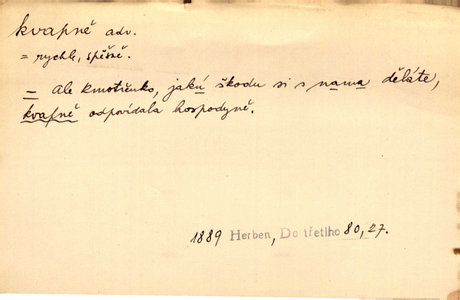 kvapně adv.
= rychle, spěšně.
= Ale kmotřenko, jakú škodu si s nama děláte,
kvapně odpovídala hospodyně.
1889 Herben, Do třetího 80, 27.